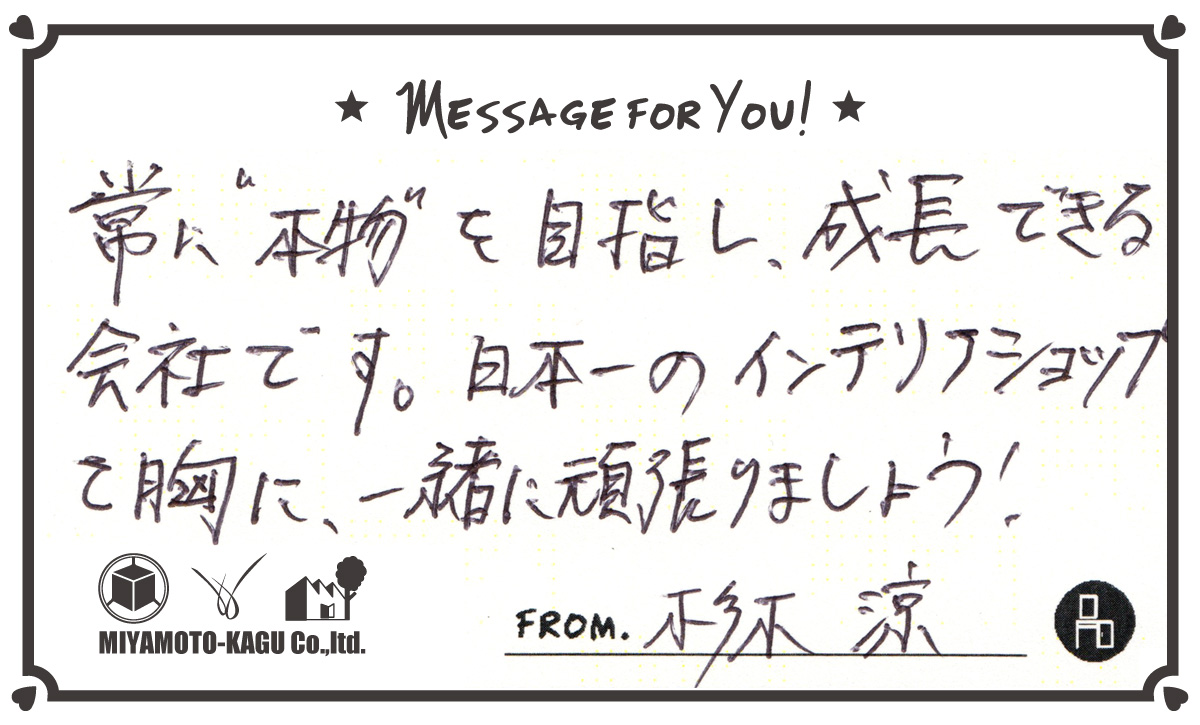 ★ MESSAGE FOR YOU! ★
常に“本物”を目指し、成長できる
会社です。日本一のインテリアショップ
を胸に、一緒に頑張りましょう!
FROM. 涼
MIYAMOTO-KAGU Co.,ltd.